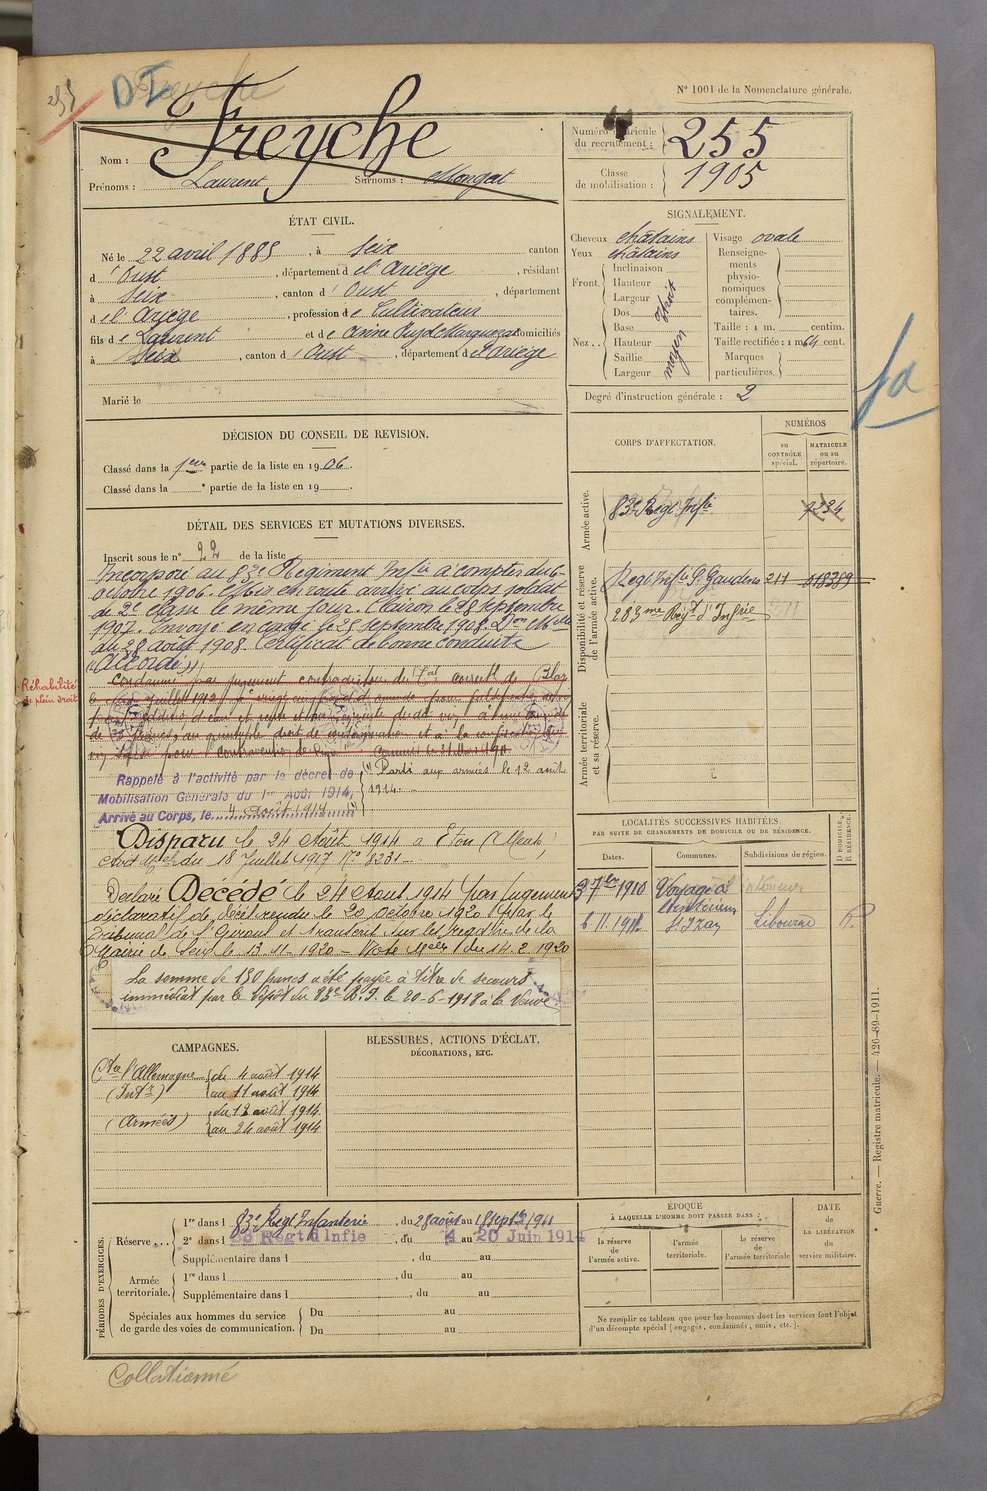 255
DI
Freyche
N° 1001 de la Nomenclature générale.
Nom : Freyche
Prénoms : Laurent Surnoms : Mongat
Numéro matricule du recrutement : 255
Classe de mobilisation : 1905
ÉTAT CIVIL.
Né le 22 avril 1885, à Seix canton
d'Oust, département de l'Ariège, résidant
à Seix, canton d'Oust, département
de l'Ariège, profession de Cultivateur
fils de Laurent et de Anne domiciliés
à Seix, canton d'Oust, département de l'Ariège
Marié le
SIGNALEMENT.
Cheveux châtains
Yeux châtains
Front. Inclinaison
Hauteur
Largeur
étroit
Nez.. Dos
Base
Hauteur
Saillie
Largeur
moyen
Visage ovale
Renseignements physionomiques complémentaires.
Taille : 1 m. centim.
Taille rectifiée : 1 m 64 cent.
Marques particulières.
Degré d'instruction générale : 2
fa
DÉCISION DU CONSEIL DE REVISION.
Classé dans la 1ere partie de la liste en 1906.
Classé dans la e partie de la liste en 19
DÉTAIL DES SERVICES ET MUTATIONS DIVERSES.
Inscrit sous le n° 22 de la liste
Incorporé au 83e Régiment Infie à compter du 6
octobre 1906. Mis en route arrivé au corps soldat
de 2e classe le même jour. Clairon le 28 septembre
1907. Envoyé en congé le 25 septembre 1908. Don Mle
du 28 août 1908. Certificat de bonne conduite
"Accordé"
Réhabilité de plein droit
Condamné par jugement contradictoire du Tal correctl de Blaye
Juillet 1912
Rappelé à l'activité par le décret de
Mobilisation Générale du 1er Août 1914,
Arrivé au Corps, le 4 Août 1914
(1) Parti aux armées le 12 août
1914.
Disparu le 24 Août 1914 à Eton (Meuse)
Avis Mel du 18 Juillet 1917 N° 8231
Déclaré Décédé le 24 Aout 1914 par Jugement
déclaratif de décès rendu le 20 octobre 1920 par le
Tribunal de St Girons et transcrit sur les registres de la
Mairie de Seix le 13-11-1920
La somme de 150 francs a été payée à titre de secours
immédiat par le dépôt du 83e R.I. le 20-6-1918 à la Veuve.
CORPS D'AFFECTATION.
NUMÉROS
au CONTRÔLE spécial.
MATRICULE ou au répertoire.
Armée active.
83e Régt Infie
7234
Disponibilité et réserve de l'armée active.
Régt Infie St Gaudens 211 018389
283me Régt d'Infrie
Armée territoriale et sa réserve.
LOCALITÉS SUCCESSIVES HABITÉES
PAR SUITE DE CHANGEMENTS DE DOMICILE OU DE RÉSIDENCE.
Dates.
Communes.
Subdivisions de région.
D DOMICILE, R RÉSIDENCE.
3 7bre 1910 Voyage à l'intérieur
6.11.1911 St Izan Libourne R.
CAMPAGNES.
Cte l'Allemagne
(Intr) du 4 août 1914
au 11 août 1914
(Armées) du 12 août 1914
au 24 août 1914
BLESSURES, ACTIONS D'ÉCLAT,
DÉCORATIONS, ETC.
PÉRIODES D'EXERCICES.
Réserve... 1re dans l 83e Régt Infanterie, du 28 août au 18 septbre 1911
2e dans l 83 Régt d'Infie, du 4 au 20 Juin 1914
Supplémentaire dans l, du au
Armée territoriale. 1re dans l, du au
Supplémentaire dans l, du au
Spéciales aux hommes du service de garde des voies de communication. Du au
Du au
ÉPOQUE
À LAQUELLE L'HOMME DOIT PASSER DANS :
la réserve de l'armée active.
l'armée territoriale.
la réserve de l'armée territoriale
DATE
de LA LIBÉRATION du service militaire.
Ne remplir ce tableau que pour les hommes dont les services font l'objet
d'un décompte spécial (engagés, condamnés, omis, etc.).
Guerre. — Registre matricule. — 426-89-1911.
Collationné